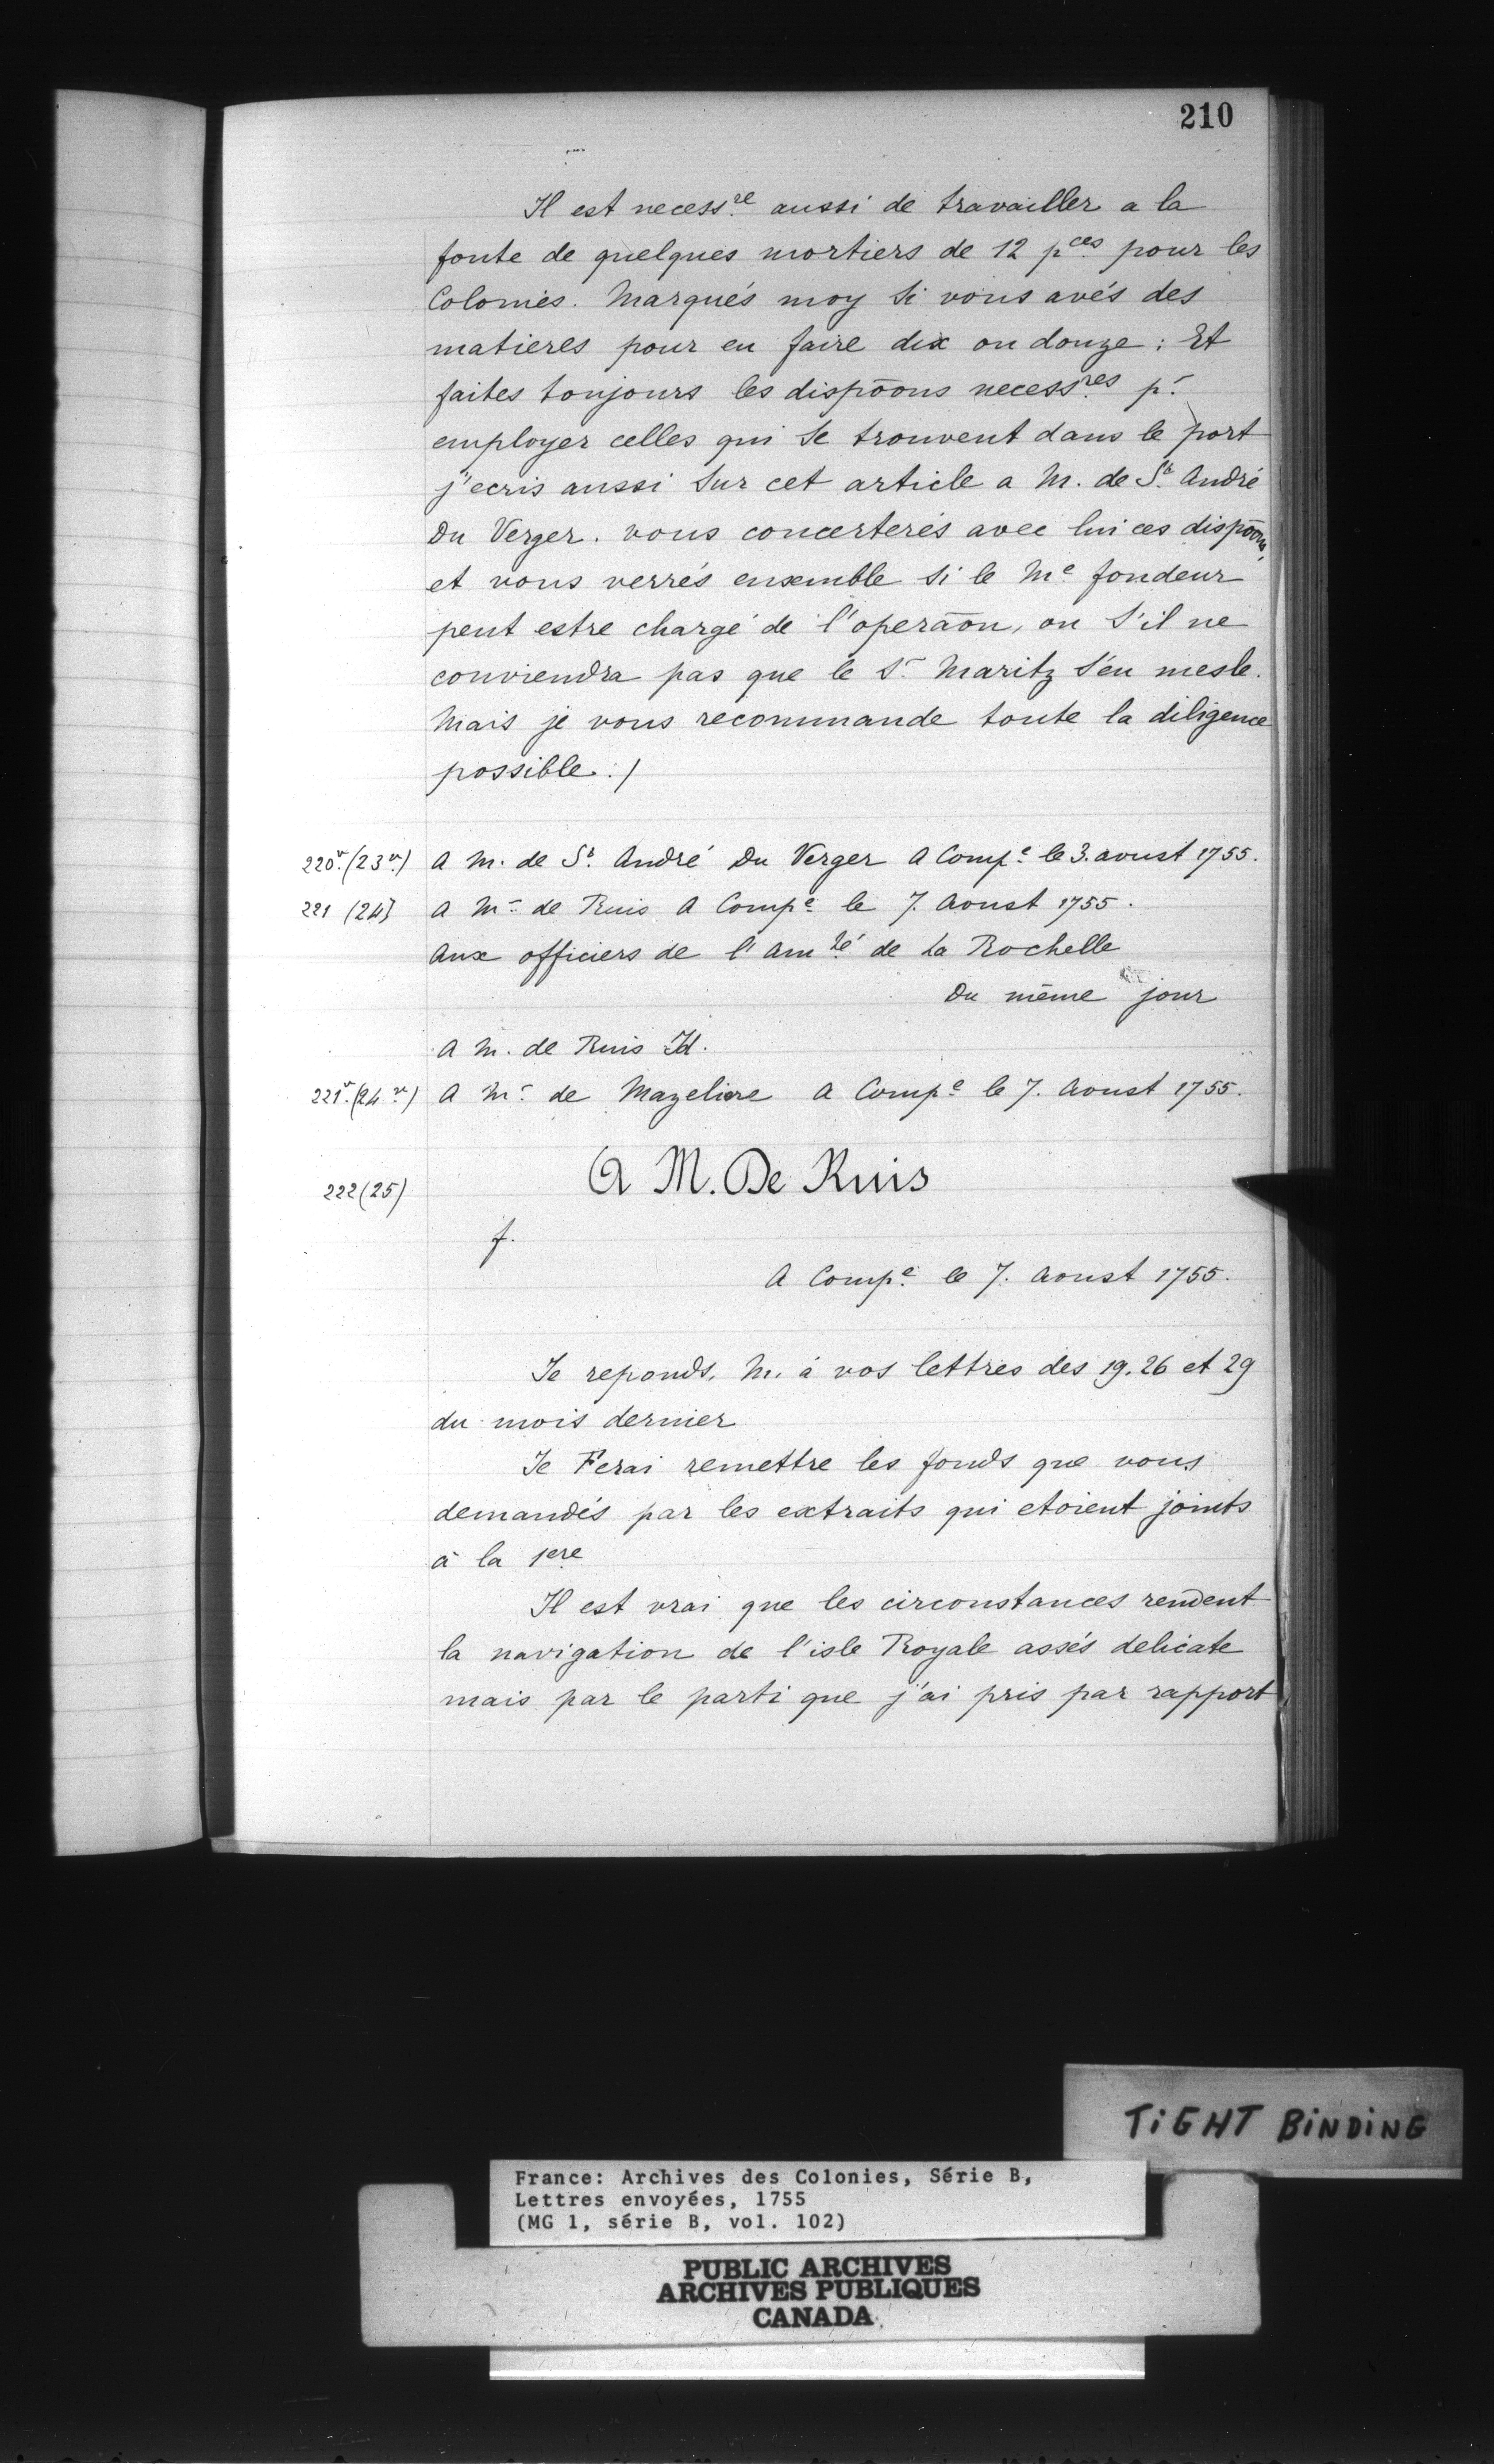 210
Il est necess.re aussi de travailler a la
fonte de quelques mortiers de 12 p.ces pour les
Colonies. Marqués moy si vous avés des
matieres pour en faire dix ou douze : Et
faites toujours les dispōons necess.res p.r
employer celles qui se trouvent dans le port
j'ecris aussi sur cet article a M. de S.t André
Du Verger. vous concerterés avec lui ces dispōons,
et vous verrés ensemble si le M.e fondeur
peut estre chargé de l'operāon, ou s'il ne
conviendra pas que le S.r Maritz s'en mesle.
Mais je vous recommande toute la diligence
possible ./
220.v (23.v) A M. de S.t André Du Verger A Comp.e le 3. aoust 1755.
221 (24) A M.r de Ruis A Comp.e le 7. Aoust 1755.
Aux officiers de l'am.té de La Rochelle
Du même jour
A M. de Ruis Id.
221.v (24.v) A M.r de Mazeliere A Comp.e le 7. Aoust 1755.
222 (25) A M. De Ruis
f.
A Comp.e le 7. Aoust 1755.
Je reponds, M. à vos lettres des 19. 26 et 29
du mois dernier
Je Ferai remettre les fonds que vous
demandés par les extraits qui etoient joints
à la 1.ere
Il est vrai que les circonstances rendent
la navigation de l'isle Royale assés delicate
mais par le parti que j'ai pris par rapport
TiGHT BiNDiNG
France: Archives des Colonies, Série B,
Lettres envoyées, 1755
(MG 1, série B, vol. 102)
PUBLIC ARCHIVES
ARCHIVES PUBLIQUES
CANADA